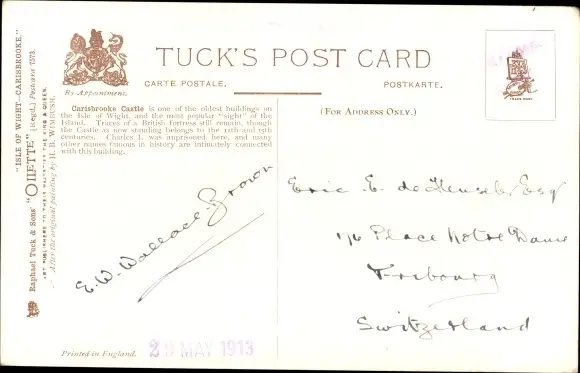 TUCK'S POST CARD
CARTE POSTALE.
POSTKARTE.
By Appointment.
(FOR ADDRESS ONLY.)
Carisbrooke Castle is one of the oldest buildings on
the Isle of Wight, and the most popular "sight" of the
Island. Traces of a British fortress still remain, though
the Castle as now standing belongs to the 12th and 15th
centuries. Charles I. was imprisoned here, and many
other names famous in history are intimately connected
with this building.
"ISLE OF WIGHT—CARISBROOKE."
Raphael Tuck & Sons' "OILETTE" (Regd.) Postcard 7573.
ART PUBLISHERS TO THEIR MAJESTIES THE KING & QUEEN.
After the original painting by H. B. WIMBUSH.
E. W. Wallace Brown
Eric E. de
Esq
Place Notre Dame
Fribourg
Switzerland
TRADE MARK
Printed in England.
29 MAY 1913